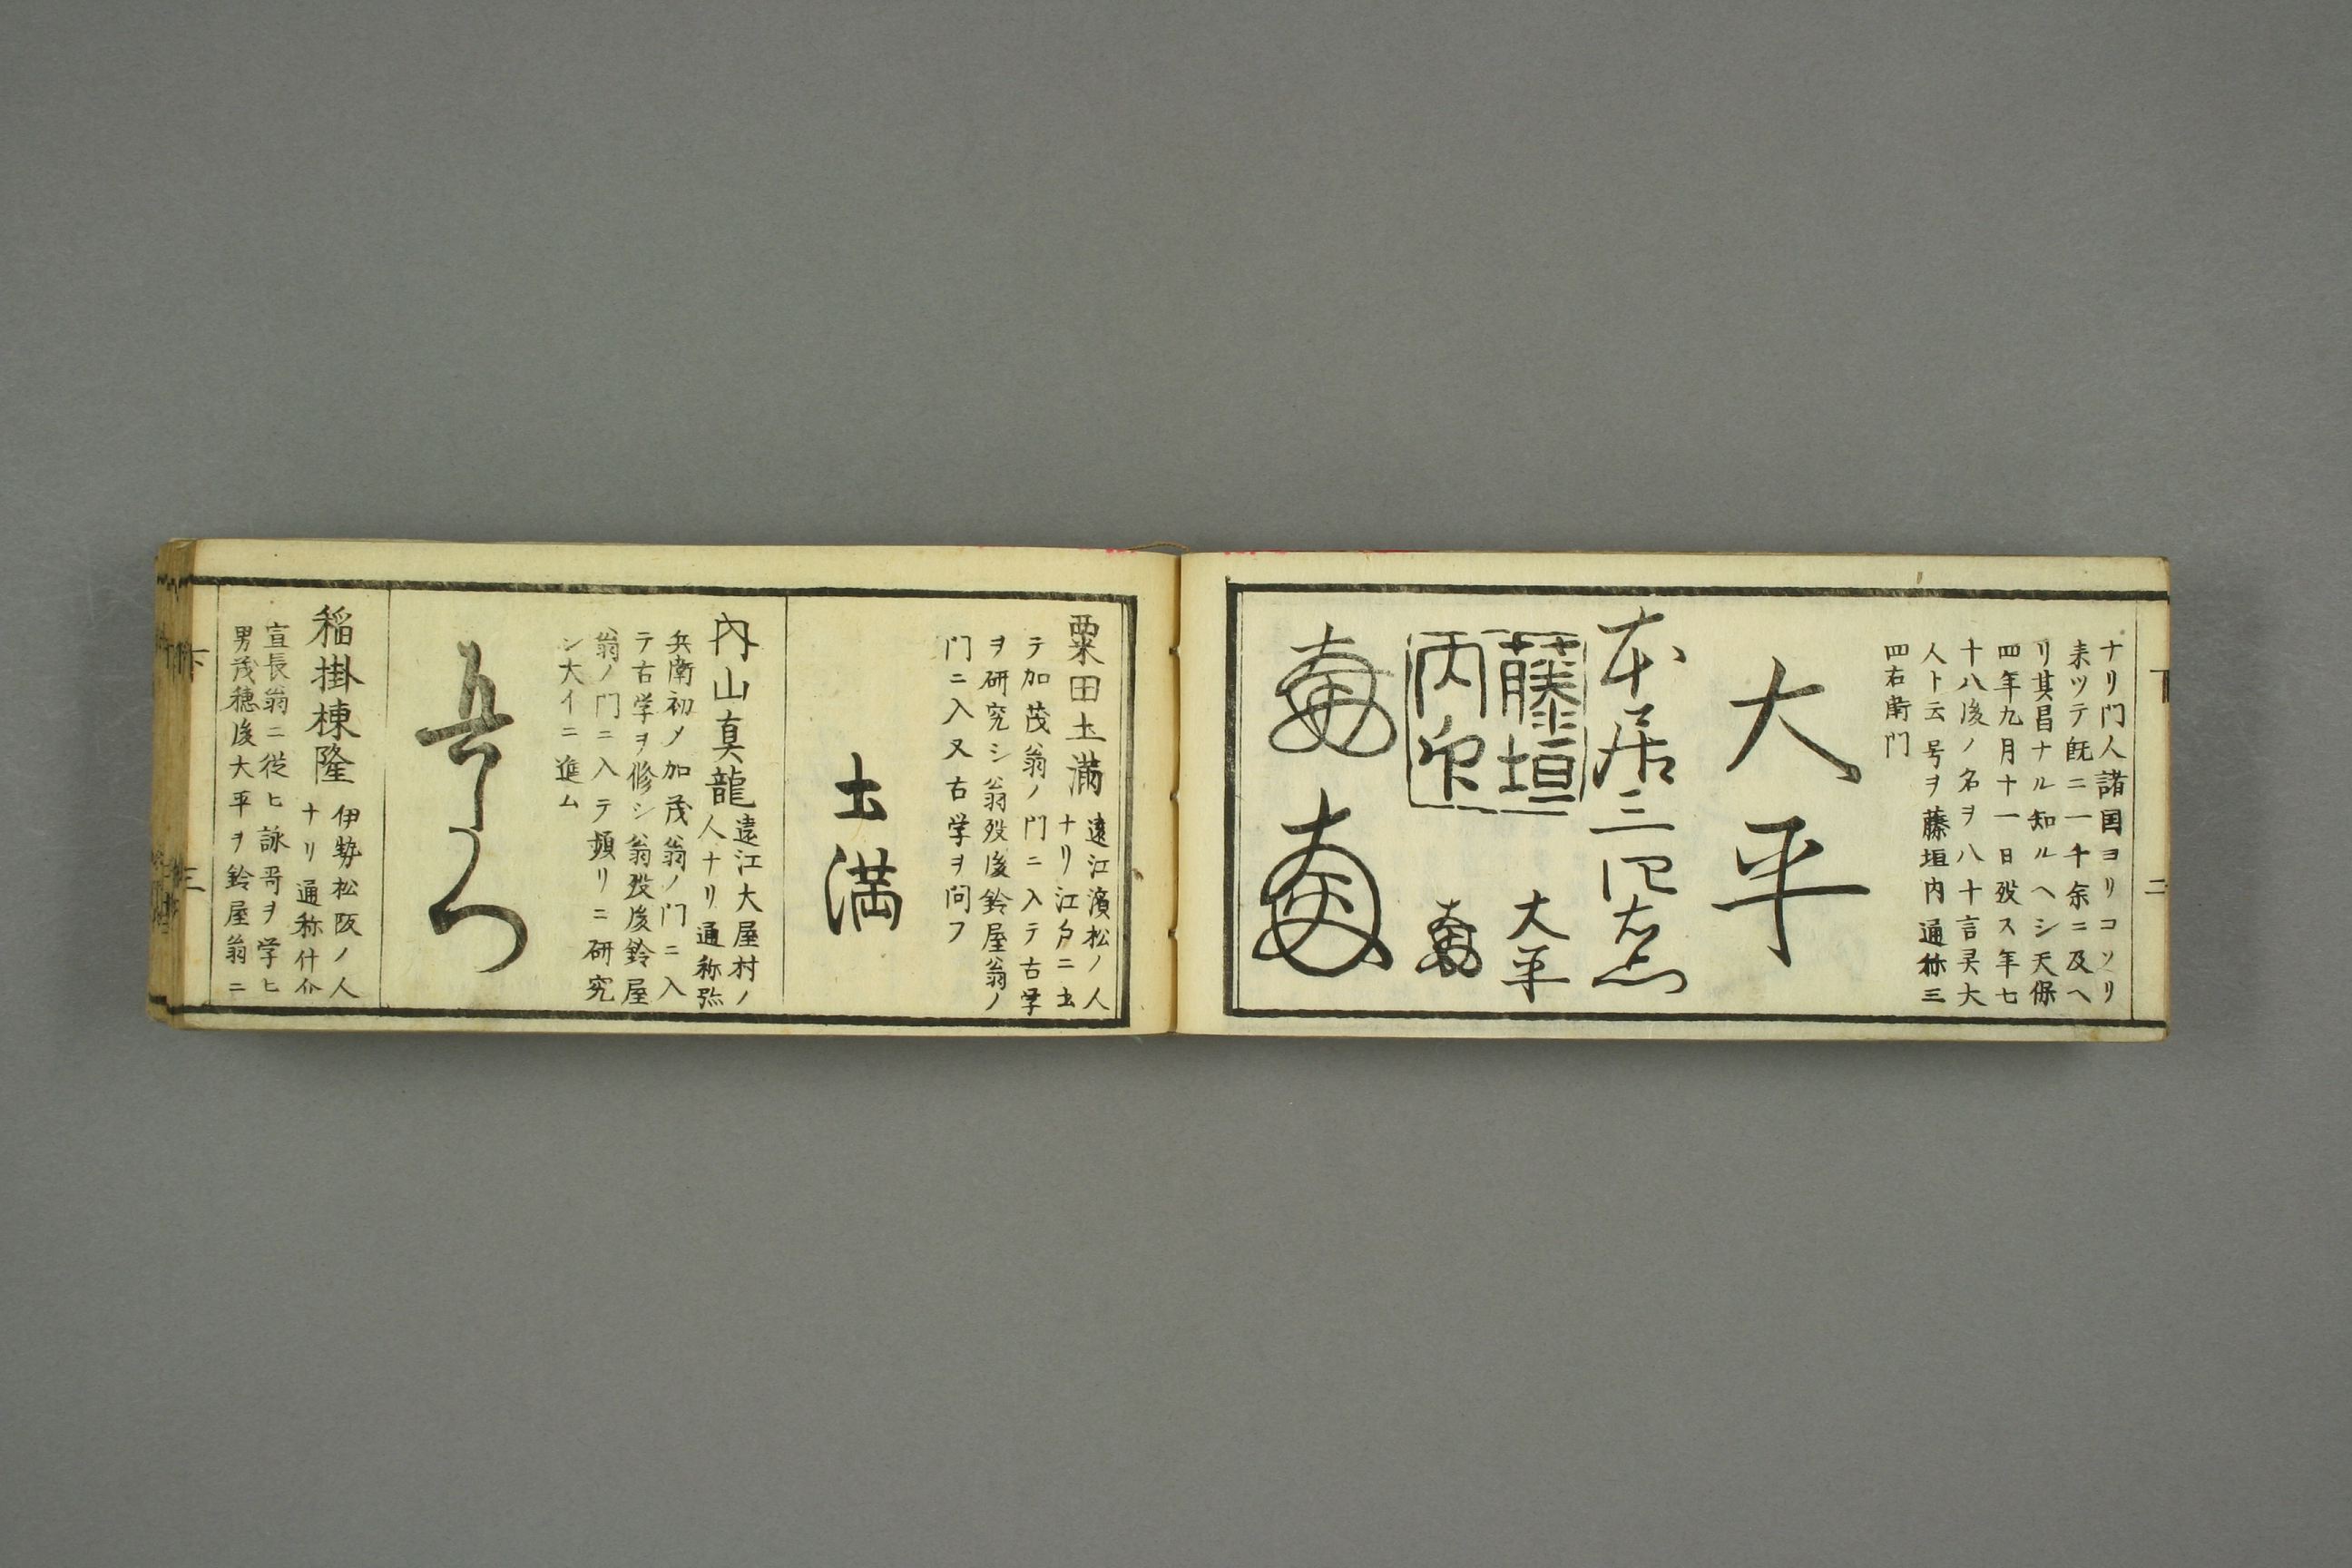 下
二
ナリ門人諸国ヨリコソリ
来ツテ既ニ一千余ニ及ヘ
リ其昌ナル知ルヘシ天保
四年九月十一日歿ス年七
十八後ノ名ヲ八十言灵大
人ト云号ヲ藤垣内通称三
四右衛門
大平
本居三四右衛門
藤垣
内印
大平
粟田土満
遠江濱松ノ人
ナリ江戸ニ出
テ加茂翁ノ門ニ入テ古学
ヲ研究シ翁歿後鈴屋翁ノ
門ニ入又古学ヲ問フ
土満
内山真龍
遠江大屋村ノ
人ナリ通称弥
兵衛初メ加茂翁ノ門ニ入
テ古学ヲ修シ翁歿後鈴屋
翁ノ門ニ入テ頻リニ研究
シ大イニ進ム
稲掛棟隆
伊勢松阪ノ人
ナリ通称什介
宣長翁ニ従ヒ詠哥ヲ学ヒ
男茂穂後大平ヲ鈴屋翁ニ
下
三